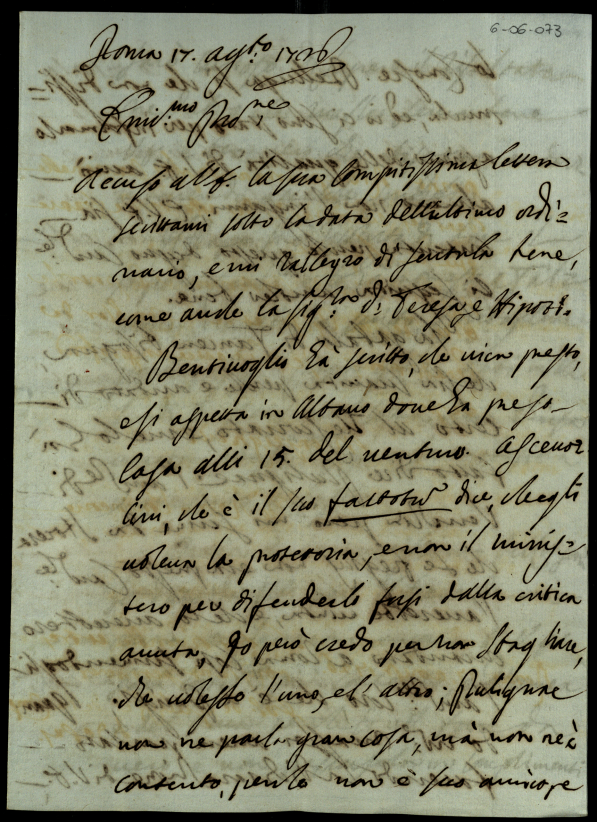 6-06-073
Roma 17. ag.to 1726
Emi.mo Pad.ne
Accuso all' la sua Compitissima lettera
scrittami sotto la data dell'ultimo ordi=
nario, e mi rallegro di sentirla bene,
come anche la Sig.ra d. Teresa, e Nipoti.
Bentivoglio hà scritto, che viene presto,
e si aspetta in Albano dove hà preso
Casa alli 15. del venturo.
cini, che è il suo factotum dice, che egli
voleva la protettoria, e non il minis=
tero per difenderlo forsi dalla critica
avuta, Io però credo per non sbagliare,
che volesse l'uno, e l'altro; Polignac
non ne parla gran cosa, mà non ne è
contento, perche non è suo amico, e